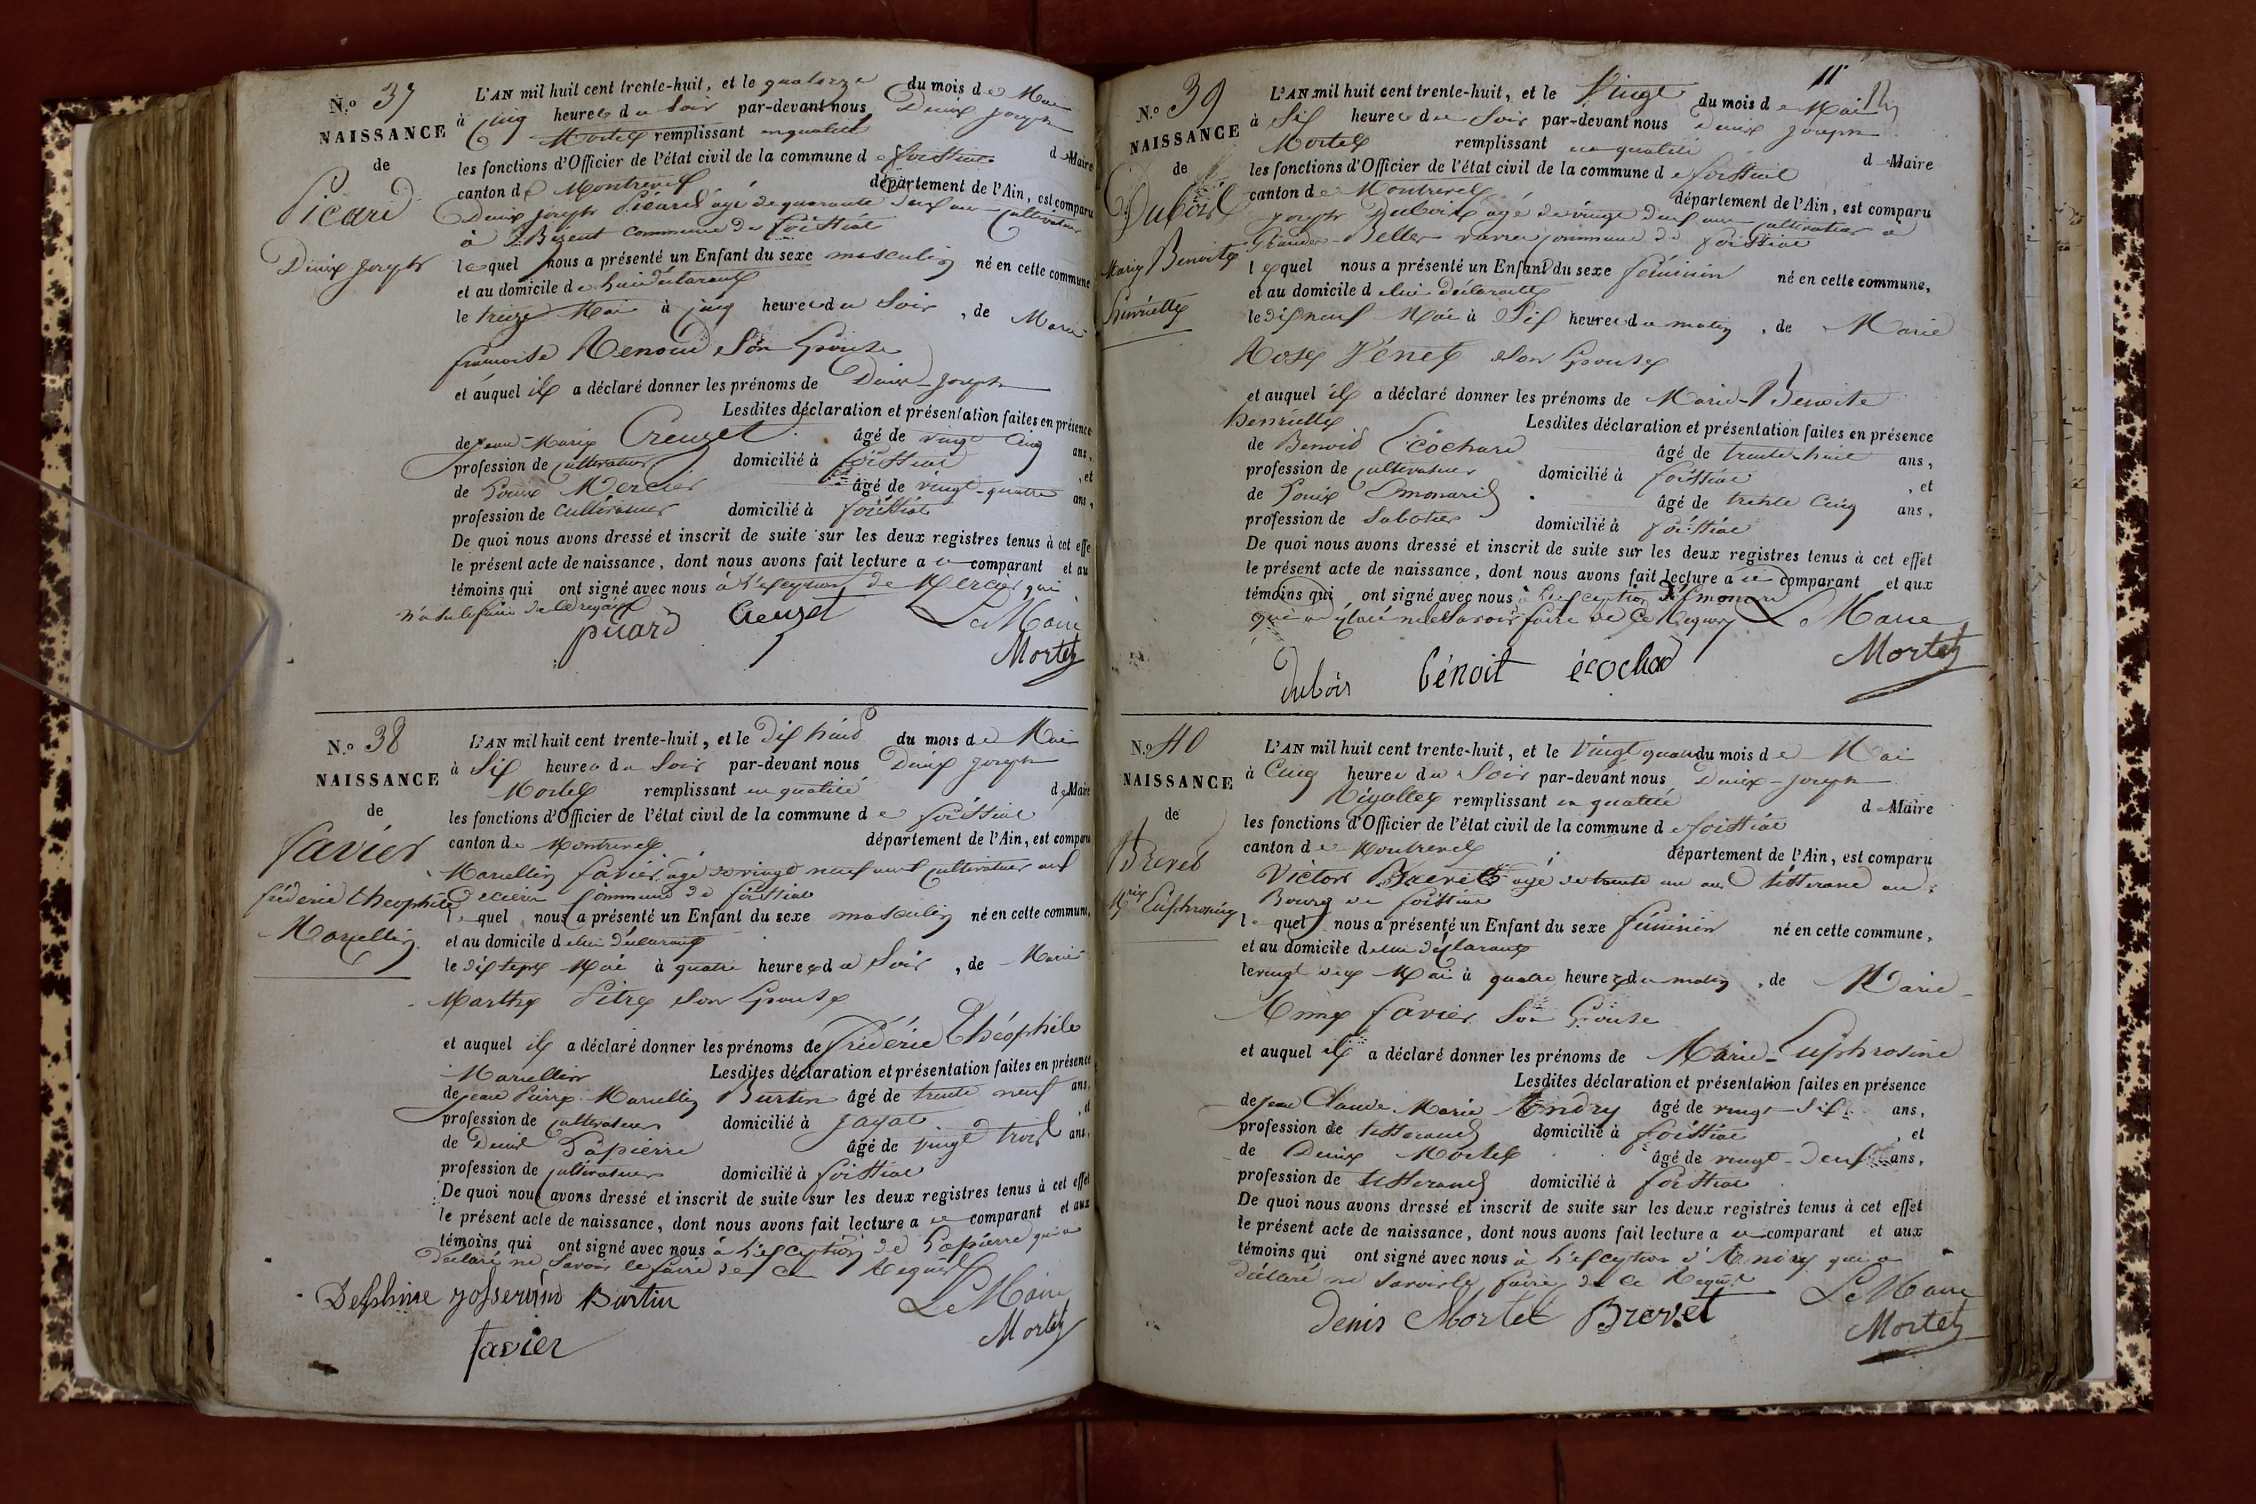 N.o 37
NAISSANCE
de
Picard
Denis Joseph
L'AN mil huit cent trente-huit, et le quatorze du mois de Mai
à Cinq heures du Soir par-devant nous Denis Joseph
Mortel remplissant en qualité de Maire
les fonctions d'Officier de l'état civil de la commune de foissiat
canton de Montrevel département de l'Ain, est comparu
Denis Joseph Picard âgé de quarante deux ans cultivateur
à commune de foissiat
lequel nous a présenté un Enfant du sexe masculin né en cette commune
et au domicile de lui déclarant
le treize Mai à cinq heures du Soir, de Marie
françoise Renoud Son Epouse
et auquel il a déclaré donner les prénoms de Denis-Joseph
Lesdites déclaration et présentation faites en présence
de Jean-Marie Creuzet âgé de vingt Cinq ans,
profession de cultivateur domicilié à foissiat, et
de Louis Mercier âgé de vingt-quatre ans,
profession de cultivateur domicilié à foissiat
De quoi nous avons dressé et inscrit de suite sur les deux registres tenus à cet effe
le présent acte de naissance, dont nous avons fait lecture a ce comparant et au
témoins qui ont signé avec nous à l'exception de Mercier qui
n'a su le faire de ce requis
picard Creuzet Le Maire
Mortel
N.o 38
NAISSANCE
de
favier
fréderic théophile
Marcellin
L'AN mil huit cent trente-huit, et le dix huit du mois de Mai
à Six heures du Soir par-devant nous Denis Joseph
Mortel remplissant en qualité de Maire
les fonctions d'Officier de l'état civil de la commune de foissiat
canton de Montrevel département de l'Ain, est comparu
Marcellin favier âgé de vingt neuf ans cultivateur aux
commune de foissiat
lequel nous a présenté un Enfant du sexe masculin né en cette commune,
et au domicile de lui déclarant
le dix sept Mai à quatre heures du Soir, de Marie
Marthe Pitre Son Epouse
et auquel il a déclaré donner les prénoms de frédéric Théophile
Marcellin Lesdites déclaration et présentation faites en présence
de Jean Pierre Marcellin Burtin âgé de trente neuf ans,
profession de cultivateur domicilié à Jayat, et
de Denis Lapierre âgé de vingt trois ans,
profession de cultivateur domicilié à foissiat
De quoi nous avons dressé et inscrit de suite sur les deux registres tenus à cet effet
le présent acte de naissance, dont nous avons fait lecture a ce comparant et aux
témoins qui ont signé avec nous à l'exception de Lapierre qui a
déclaré ne Savoir le faire de ce Requis
Delphine josserand Burtin Le Maire
favier Mortel
N.o 39
NAISSANCE
de
Dubois
Marie Benoite
henriette
11
L'AN mil huit cent trente-huit, et le Vingt du mois de Mai
à Six heures du Soir par-devant nous Denis Joseph
Mortel remplissant en qualité de Maire
les fonctions d'Officier de l'état civil de la commune de foissiat
canton de Montrevel département de l'Ain, est comparu
Joseph Dubois âgé de vingt deux ans cultivateur à
commune de foissiat
lequel nous a présenté un Enfant du sexe féminin né en cette commune,
et au domicile de lui déclarant
le dix neuf Mai à Six heures du matin, de Marie
Rose Vénet Son Epouse
et auquel il a déclaré donner les prénoms de Marie-Benoite
henriette Lesdites déclaration et présentation faites en présence
de Benoit Ecochard âgé de trente-huit ans,
profession de cultivateur domicilié à foissiat, et
de Louis Emonard âgé de trente Cinq ans,
profession de Sabotier domicilié à foissiat
De quoi nous avons dressé et inscrit de suite sur les deux registres tenus à cet effet
le présent acte de naissance, dont nous avons fait lecture a ce comparant et aux
témoins qui ont signé avec nous à l'exception d'Emonard
qui a déclaré ne le Savoir faire de ce Requis Le Maire
dubois bénoit écochard Mortel
N.o 40
NAISSANCE
de
Brevet
Mie Euphrosine
L'AN mil huit cent trente-huit, et le Vingt quatre du mois de Mai
à Cinq heures du Soir par-devant nous Denis-Joseph
remplissant en qualité de Maire
les fonctions d'Officier de l'état civil de la commune de foissiat
canton de Montrevel département de l'Ain, est comparu
Victor Brevet âgé de trente un ans tisserand au
Bourg de foissiat
lequel nous a présenté un Enfant du sexe féminin né en cette commune,
et au domicile de lui déclarant
le vingt deux Mai à quatre heures du matin, de Marie-
Anne favier Son Epouse
et auquel il a déclaré donner les prénoms de Marie-Euphrosine
Lesdites déclaration et présentation faites en présence
de Jean Claude Marie Andry âgé de vingt-six ans,
profession de tisserand domicilié à foissiat, et
de Denis Mortel âgé de vingt-deux ans,
profession de tisserand domicilié à foissiat
De quoi nous avons dressé et inscrit de suite sur les deux registres tenus à cet effet
le présent acte de naissance, dont nous avons fait lecture a ce comparant et aux
témoins qui ont signé avec nous à l'exception d'Andry qui a
déclaré ne Savoir le faire de ce Requis
denis Mortel Brevet Le Maire
Mortel